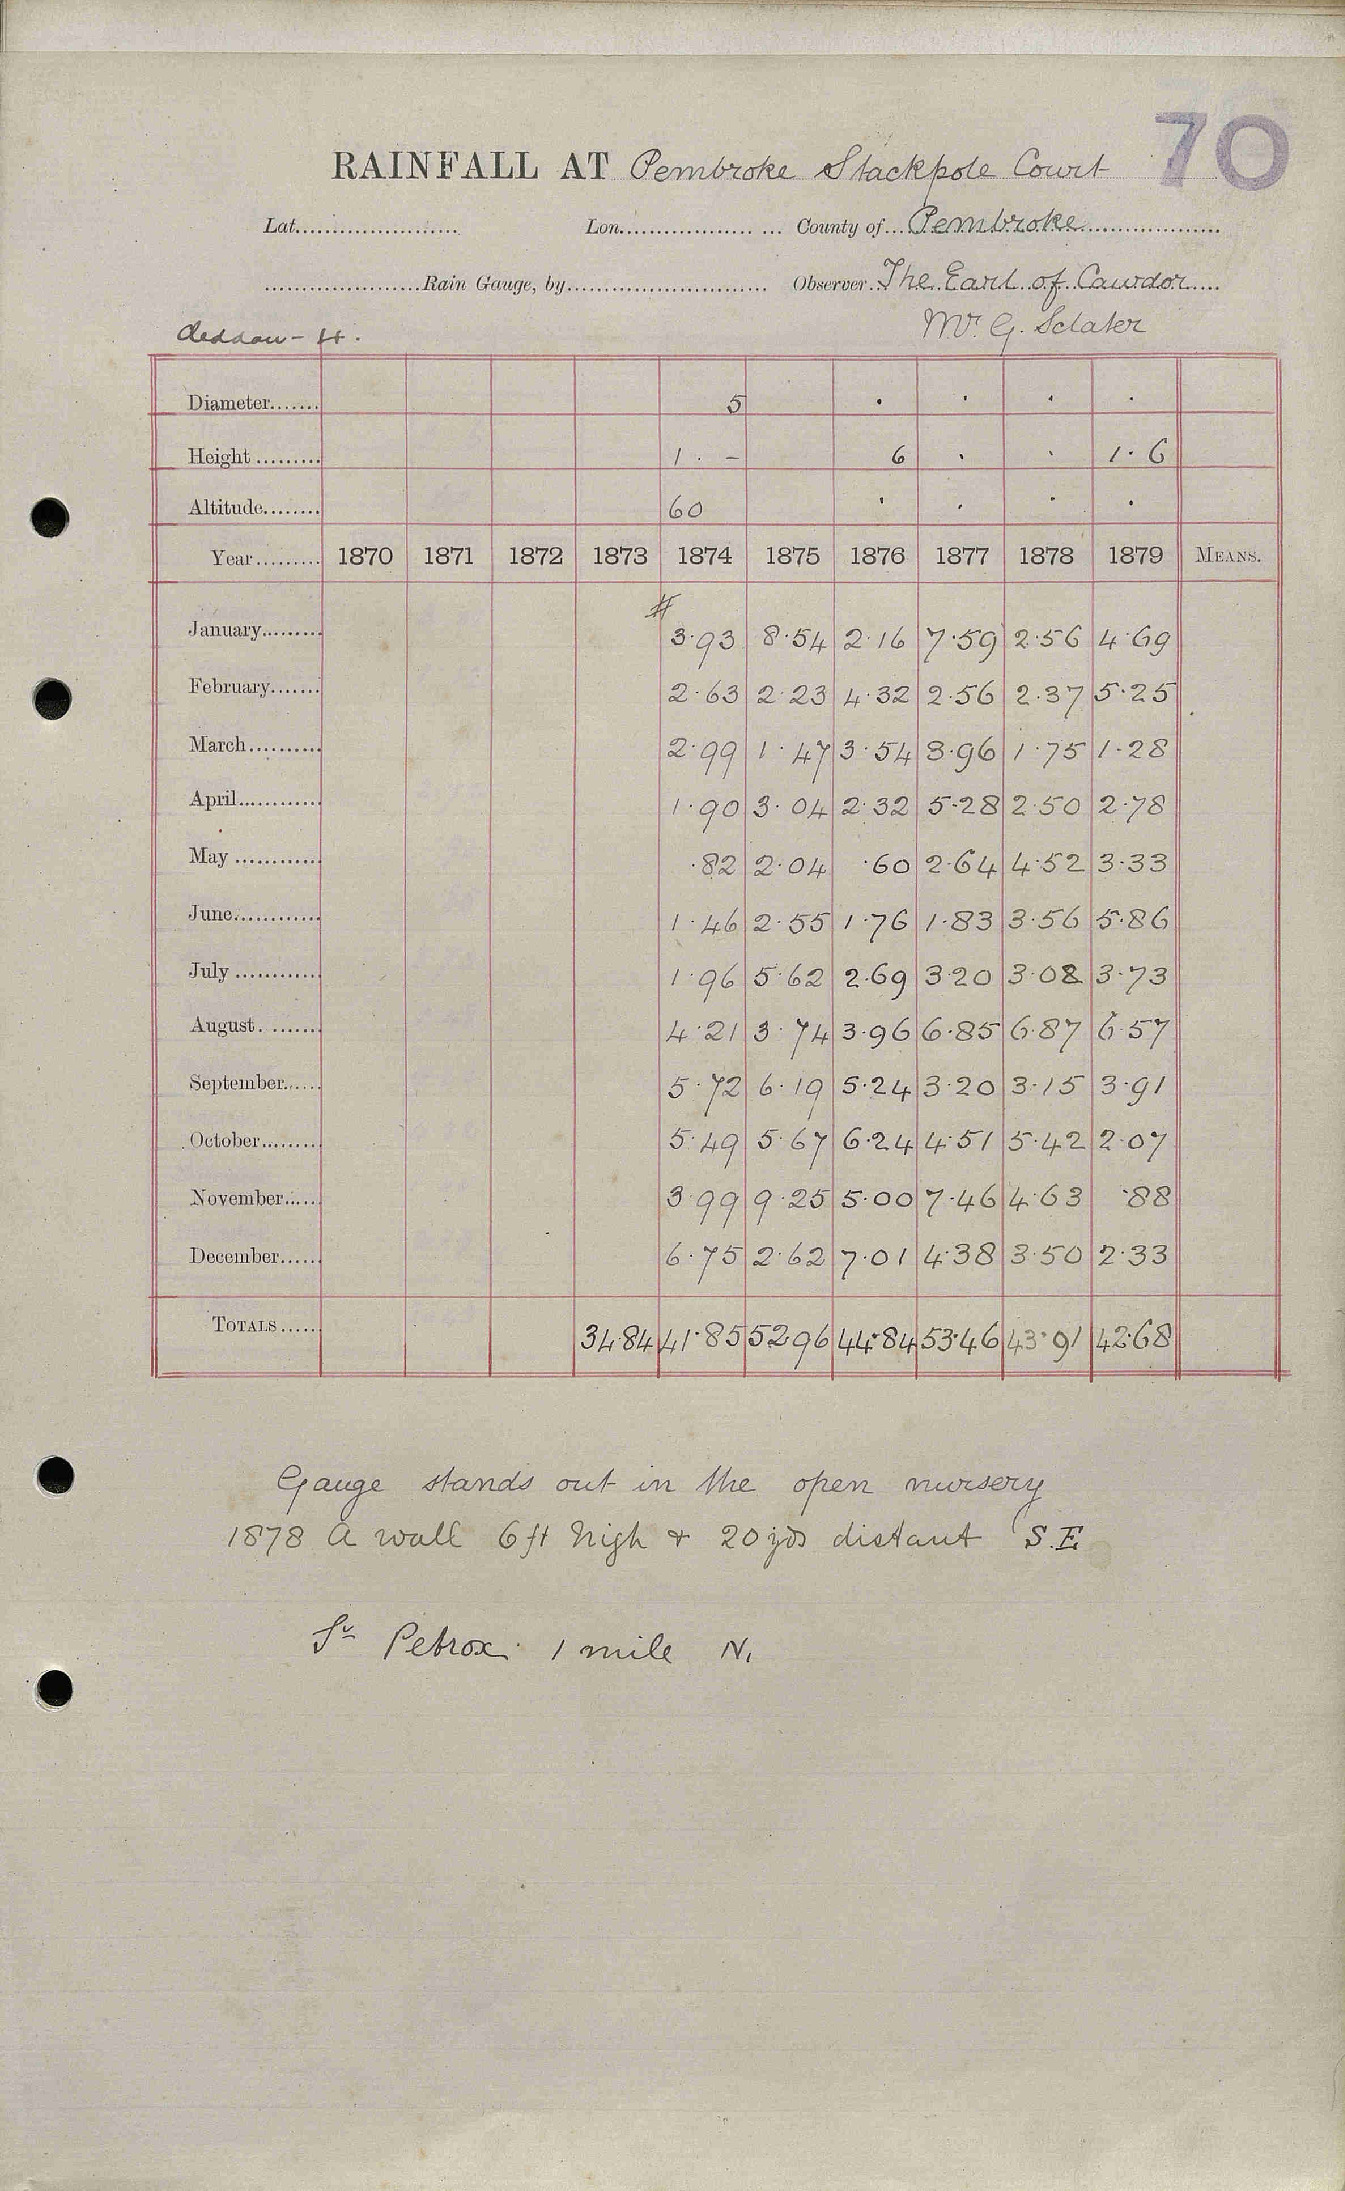 70
RAINFALL AT Pembroke Stackpole Court
Lat. Lon. County of Pembroke
Rain Gauge, by Observer The Earl of Cawdor
Mr. G. Sclater
Cleddau - H.
Diameter 5 · · · ·
Height 1 · - 6 · · 1·6
Altitude 60 · · · ·
Year 1870 1871 1872 1873 1874 1875 1876 1877 1878 1879 MEANS.
#
January 3·93 8·54 2·16 7·59 2·56 4·69
February 2·63 2·23 4·32 2·56 2·37 5·25
March 2·99 1·47 3·54 3·96 1·75 1·28
April 1·90 3·04 2·32 5·28 2·50 2·78
May ·82 2·04 ·60 2·64 4·52 3·33
June 1·46 2·55 1·76 1·83 3·56 5·86
July 1·96 5·62 2·69 3·20 3·08 3·73
August 4·21 3·74 3·96 6·85 6·87 6·57
September 5·72 6·19 5·24 3·20 3·15 3·91
October 5·49 5·67 6·24 4·51 5·42 2·07
November 3·99 9·25 5·00 7·46 4·63 ·88
December 6·75 2·62 7·01 4·38 3·50 2·33
TOTALS 34·84 41·85 52 96 44·84 53·46 43·91 42·68
Gauge stands out in the open nursery
1878 A wall 6 ft high & 20 yds distant S.E
St Petrox 1 mile N.